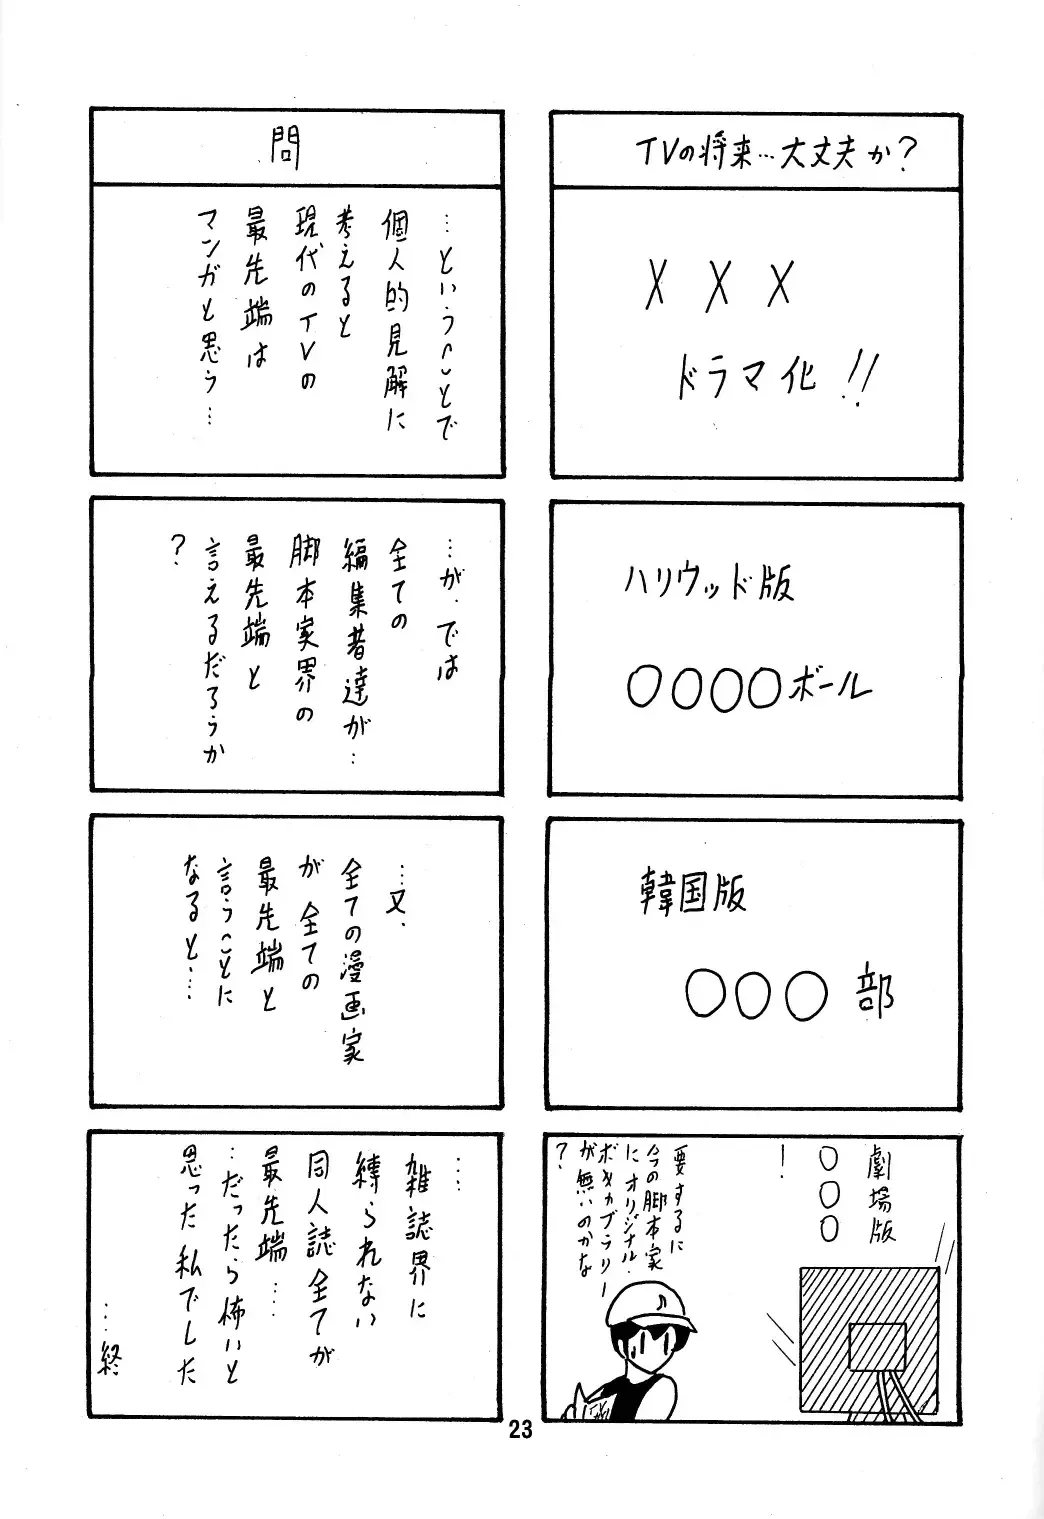 TVの将来…大丈夫か?
XXX
ドラマ化!!
ハリウッド版
〇〇〇〇ボール
韓国版
〇〇〇部
劇場版
〇〇〇
!
要するに
今の脚本家
にオリジナル・
ボキャブラリー
が無いのかな
?
問
…ということで
個人的見解に
考えると
現代のTVの
最先端は
マンガと思う…
…が、では
全ての
編集者達が…
脚本家界の
最先端と
言えるだろうか
?
…又、
全ての漫画家
が全ての
最先端と
言うことに
なると…
……
雑誌界に
縛られない
同人誌全てが
最先端……
…だったら怖いと
思った私でした
…終
23